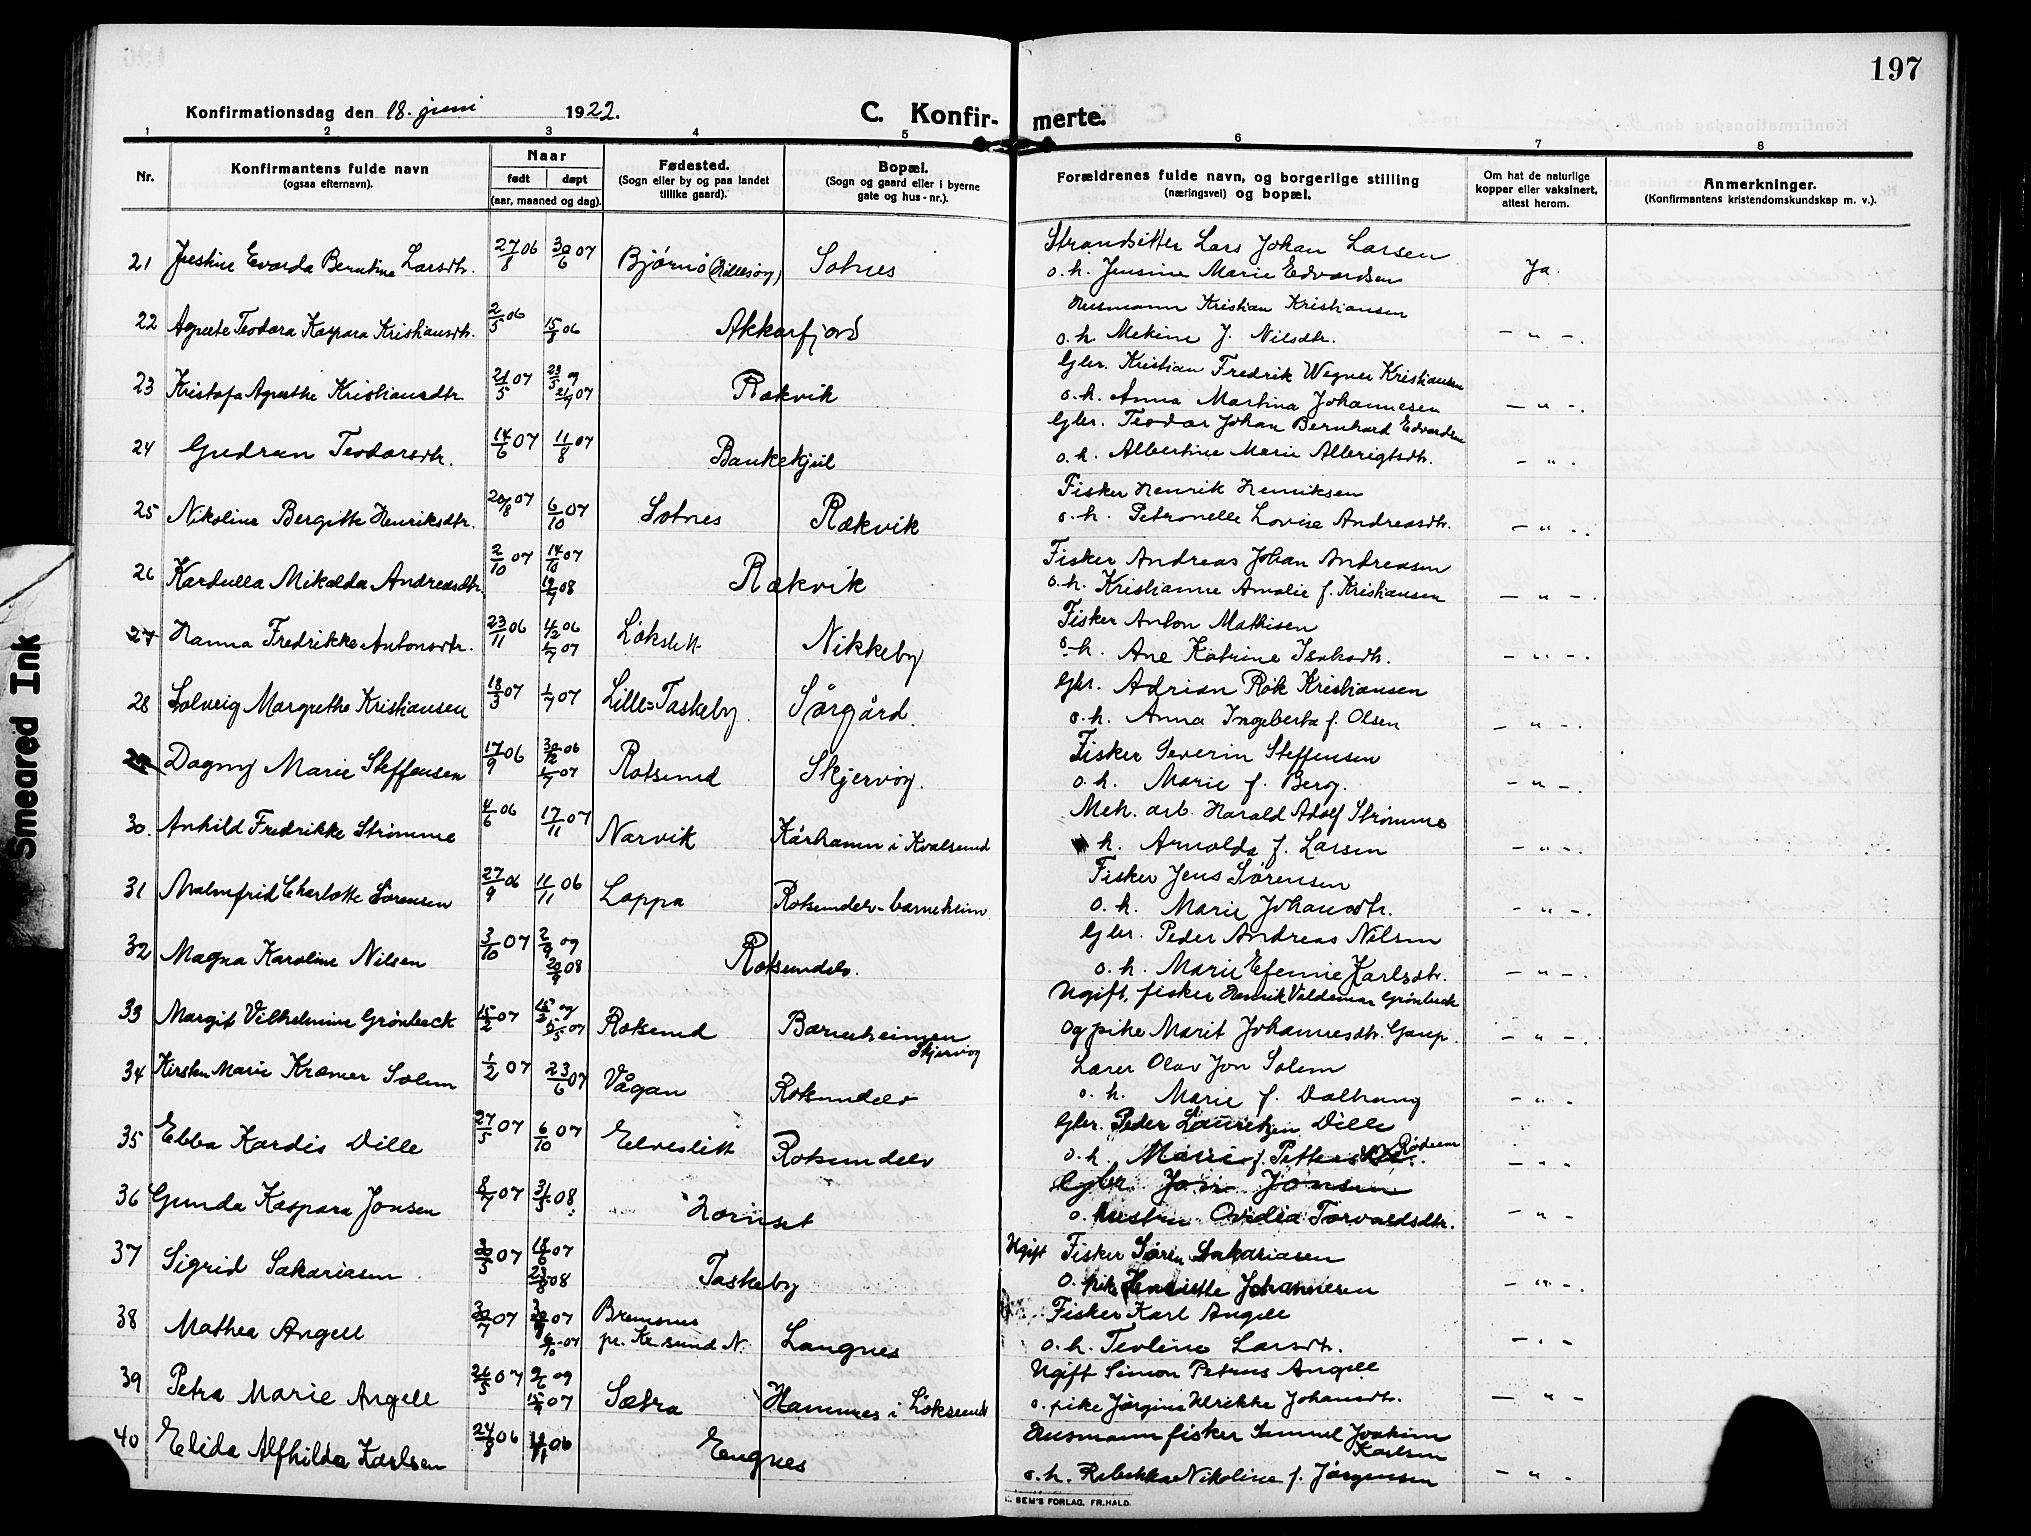 197
Konfirmationsdag den 18. juni 1922.
C. Konfir- merte.
1 2 3 4 5 6 7 8
Nr.
Konfirmantens fulde navn
(ogsaa efternavn).
Naar
født døpt
(aar, maaned og dag).
Fødested.
(Sogn eller by og paa landet
tillike gaard).
Bopæl.
(Sogn og gaard eller i byerne
gate og hus-nr.).
Forældrenes fulde navn, og borgerlige stilling
(næringsvei) og bopæl.
Om hat de naturlige
kopper eller vaksinert,
attest herom.
Anmerkninger.
(Konfirmantens kristendomskundskap m. v.).
Strandsitter Lars Johan Larsen
21 Justine Evarda Berntine Larsdtr. 27/8 06 30/6 07 Bjørnø Sotnes o. h. Jensine Marie Edvardsen Ja.
Husmann Kristian Kristiansen
22 Agnete Teodora Kaspara Kristiansdtr. 2/5 06 15/8 06 Akkarfjord o. h. Mekine J. Nilsdtr. - " -.
Gbr. Kristian Fredrik Wegner Kristiansen
23 Kristofa Agnethe Kristiansdtr. 21/5 07 21/7 07 Rækvik o. h. Anna Martina Johannesen - " -.
Gbr. Teodor Johan Bernhard Edvardsen
24 Gudrun Teodorsdtr. 14/6 07 11/8 07 Baukekjeil o. h. Albertine Marie Albrigtsdtr. - " .
Fisker Henrik Henriksen
25 Nikoline Bergitte Henriksdtr. 20/8 07 6/10 07 Sotnes Rækvik o. h. Petronelle Lovise Andreasdtr. - " .
Fisker Andreas Johan Andreasen
26 Kardulla Mikalda Andreasdtr. 2/10 07 14/10 07 19/7 08 Rækvik o. h. Kristianne Amalie f. Kristiansen - " -.
Fisker Anton Mathisen
27 Hanna Fredrikke Antonsdtr. 23/11 06 4/12 06 1/7 07 Løkslett Nikkeby o. h. Ane Katrine Isaksdtr. - " -.
Gbr. Adrian Rök Kristiansen
28 Solveig Margrethe Kristiansen 18/3 07 1/7 07 Lille-Taskeby. Sørgård. o. h. Anna Ingeberta f. Olsen - " -
Fisker Severin Steffensen
29 Dagny Marie Steffensen 17/9 06 30/12 06 1/7 07 Rotsund Skjervøy. o. h. Marie f. Berg. - " -.
Mek. arb. Harald Adolf Strømme
30. Anhild Fredrikke Strömme 4/6 06 17/11 07 Narvik Kårhamn i Kvalsund h. Arnolda f. Larsen - " -.
Fisker Jens Sørensen
31 Malmfrid Charlotte Sørensen 27/9 06 11/11 06 Loppa Rotsundelv-barneheim o. h. Marie Johansdtr. - " -.
Gbr. Peder Andreas Nilsen
32 Magna Karoline Nilsen 3/10 07 20/9 08 Rotsundelv. o. h. Marie Efenie Karlsdtr. - " -.
Ugift. fisker Henrik Valdemar Grönbeck
33 Margit Vilhelmine Grönbeck 15/2 07 5/5 07 Rotsund Barneheimen Skjervøy og pike Marit Johannesdtr. Gaup. - " -
Lærer Olav Jon Solem
34 Kirsten Marie Kræmer Solem 1/2 07 23/6 07 Vågan Rotsundelv o. h. Marie f. Dalhaug - " .
Gbr. Peder Lauritzen Dille
35 Ebba Kardis Dille 27/5 07 6/10 07 Elveslett Rotsundelv o. h. Marie f. - " .
Gbr. Jon Jonsen
36 Gunda Kaspara Jonsen 8/7 07 31/5 08. o. hustru Ovidia Torvaldsdtr. - " -
Ugift Fisker Sören Sakariasen
37 Sigrid Sakariasen 30/5 07 18/6 07 23/8 08 Taskeby o. pike Henriette Johannesen - " -
Fisker Karl Angell
38 Mathea Angell 30/7 07 Bremsnes pr. Kr.sund N. Langnes o. h. Teoline Larsdtr. - " -
Ugift Simon Petrus Angell
39 Petra Marie Angell 26/5 07 15/9 07 Sætra Hamnes i Løksund o. pike Jørgine Ulrikke Johansdtr. - " -
Husmann fisker Samuel Joakim Karlsen
40 Elida Alfhilda Karlsen 24/8 06 Engnes o. h. Rebekka Nikoline f. Jørgensen - " -
SEM'S FORLAG, FR.HALD.
Smeared Ink